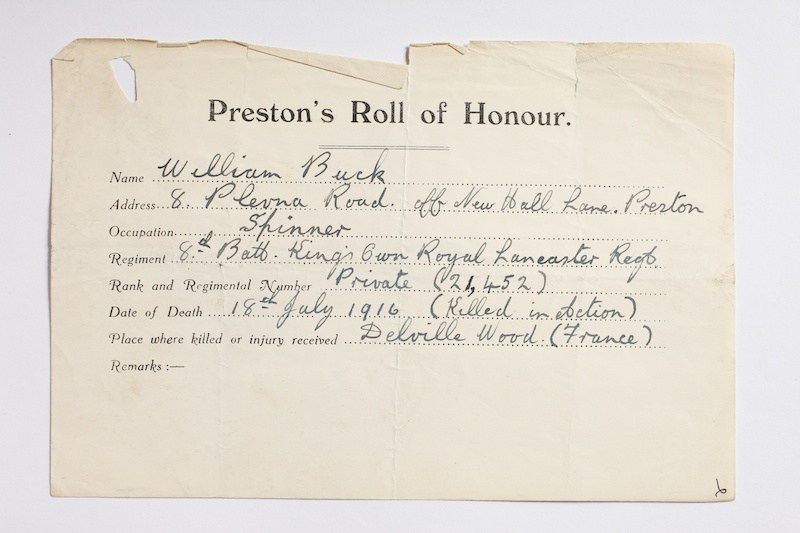 Preston's Roll of Honour.
Name William Buck
Address 8. Plevna Road. off New Hall Lane. Preston
Occupation Spinner
Regiment 8th Batt. King's Own Royal Lancaster Regt.
Rank and Regimental Number Private (21,452)
Date of Death 18th July 1916 (Killed in Action)
Place where killed or injury received Delville Wood. (France)
Remarks :—